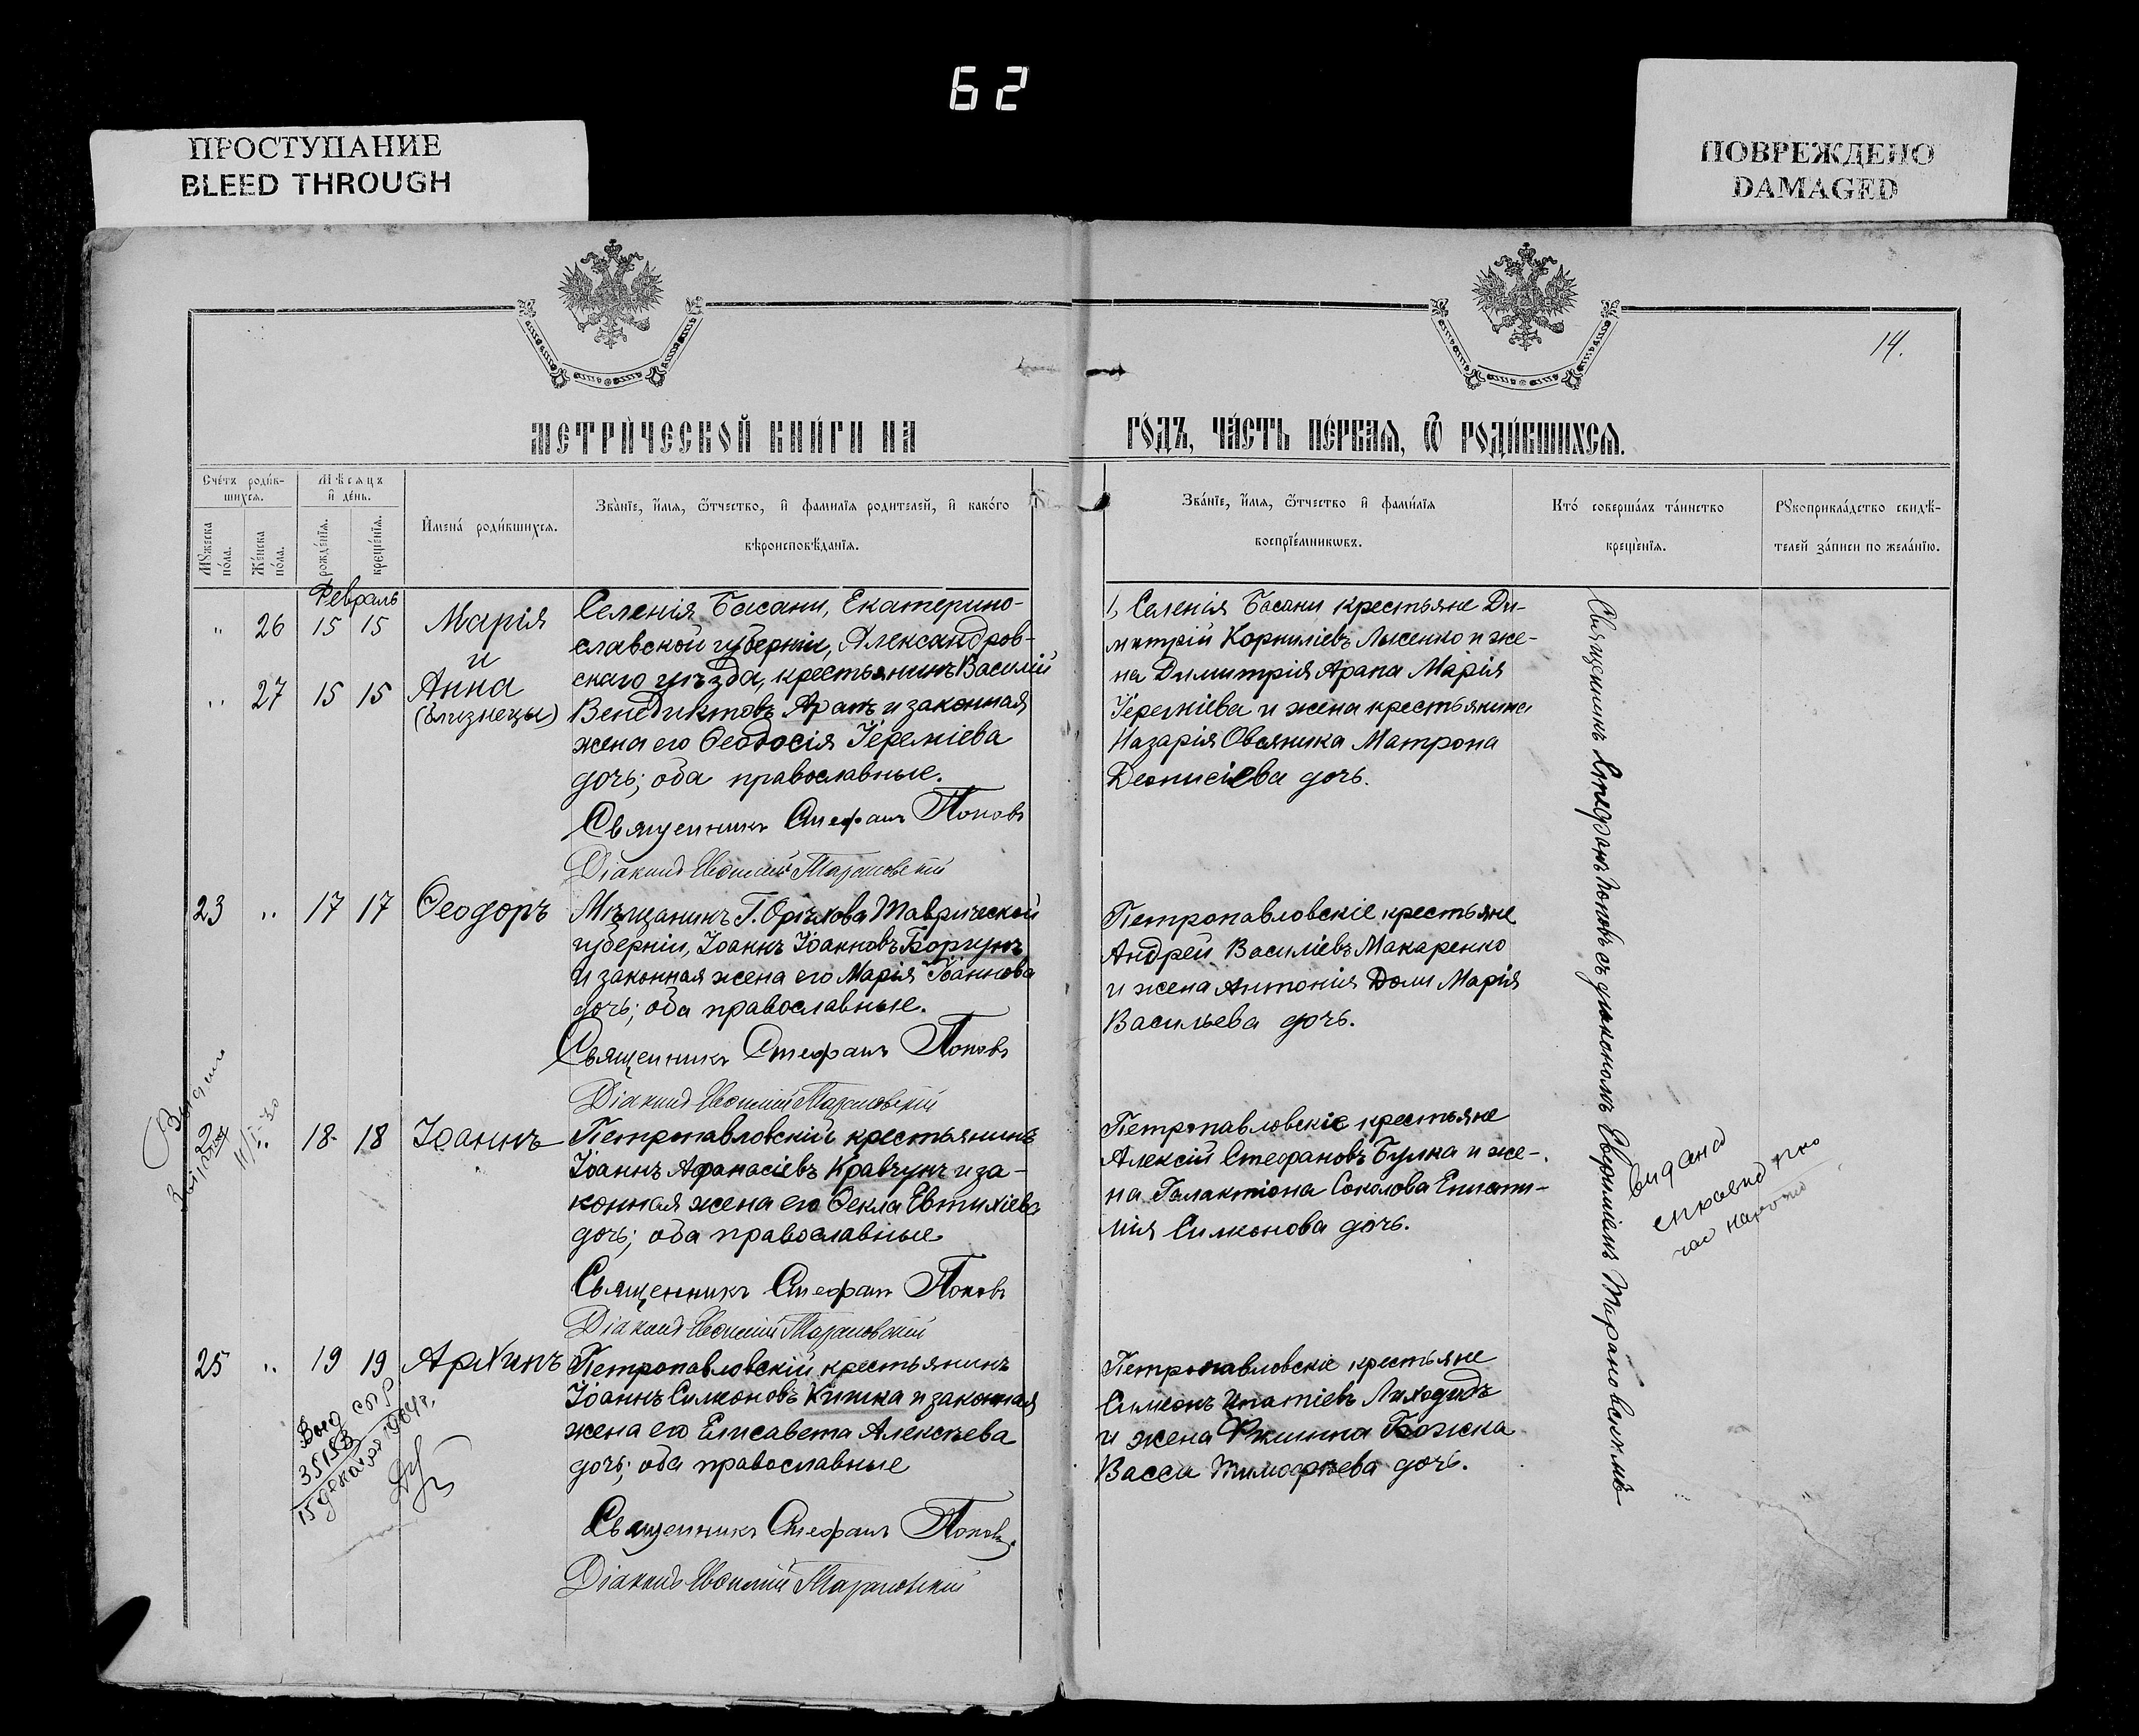 62
ПРОСТУПАНИЕ
BLEED THROUGH
ПОВРЕЖДЕНО
DAMAGED
14.
МЕТРИ́ЧЕСКОЙ КНИ́ГИ НА
ГО́ДЪ, ЧА́СТЬ ПЕ́РВАѦ, Ѿ РОДИ́ВШИХСѦ.
Сче́тъ роди́в-
шихсѧ.
Мѣ́сѧцъ
и҆ де́нь.
Мꙋ́жеска
по́ла.
Же́нска
по́ла.
рожде́нїѧ.
креще́нїѧ.
И҆мена̀ роди́вшихсѧ.
Зва́нїе, и҆́мѧ, ѻ҆́тчество, и҆ фамилїѧ родителей, и҆ како́го
вѣроисповѣ́данїѧ.
Зва́нїе, и҆́мѧ, ѻ҆́тчество и҆ фами́лїѧ
воспрїе́мникѡвъ.
Кто́ соверша́лъ та́инство
креще́нїѧ.
Рꙋкоприкла́дство свидѣ́-
телей за́писи по жела́нїю.
Февраль
" 26 15 15 Марія
и
" 27 15 15 Анна
(близнецы)
Селенія Басани, Екатерино-
славской губерніи, Александров-
скаго уѣзда, крестьянинъ Василій
Венедиктовъ Арапъ и законная
жена его Ѳеодосія Іереміева
дочь; оба православные.
Священникъ Стефанъ Поповъ
Діаконъ Евѳимій Тарановскій
1, Селенія Басани крестьяне Ди-
митрій Корниліевъ Лысенко и же-
на Димитрія Арапа Марія
Іереміева и жена крестьянина
Назарія Овсяника Матрона
Деонисіева дочь.
23 " 17 17 Ѳеодоръ
Мѣщанинъ Г. Орѣхова Таврической
губерніи, Іоаннъ Іоанновъ Боргунъ
и законная жена его Марія Іоаннова
дочь; оба православные.
Священникъ Стефанъ Поповъ
Діаконъ Евѳимій Тарановскій
Петропавловскіе крестьяне
Андрей Василіевъ Макаренко
и жена Антонія Доли Марія
Васильева дочь.
Видано
18 18 Іоаннъ
Петропавловскій крестьянинъ
Іоаннъ Аѳанасіевъ Кравчунъ и за-
конная жена его Ѳекла Евтихіева
дочь; оба православные
Священникъ Стефанъ Поповъ
Діаконъ Евѳимій Тарановскій
Петропавловскіе крестьяне
Алексій Стефановъ Булка и же-
на Галактіона Соколова
Симеонова дочь.
25 " 19 19 Архипъ
Петропавловскій крестьянинъ
Іоаннъ Симеоновъ Кишка и законная
жена его Елисавета Алексѣева
дочь; оба православные
Священникъ Стефанъ Поповъ.
Діаконъ Евѳимій Тарановскій
Петропавловскіе крестьяне
Симеонъ Ипатіевъ Лиходидъ
и жена Божка
Васса Тимофѣева дочь.
Священникъ Стефанъ Поповъ съ діакономъ Евѳиміемъ Тарановскимъ